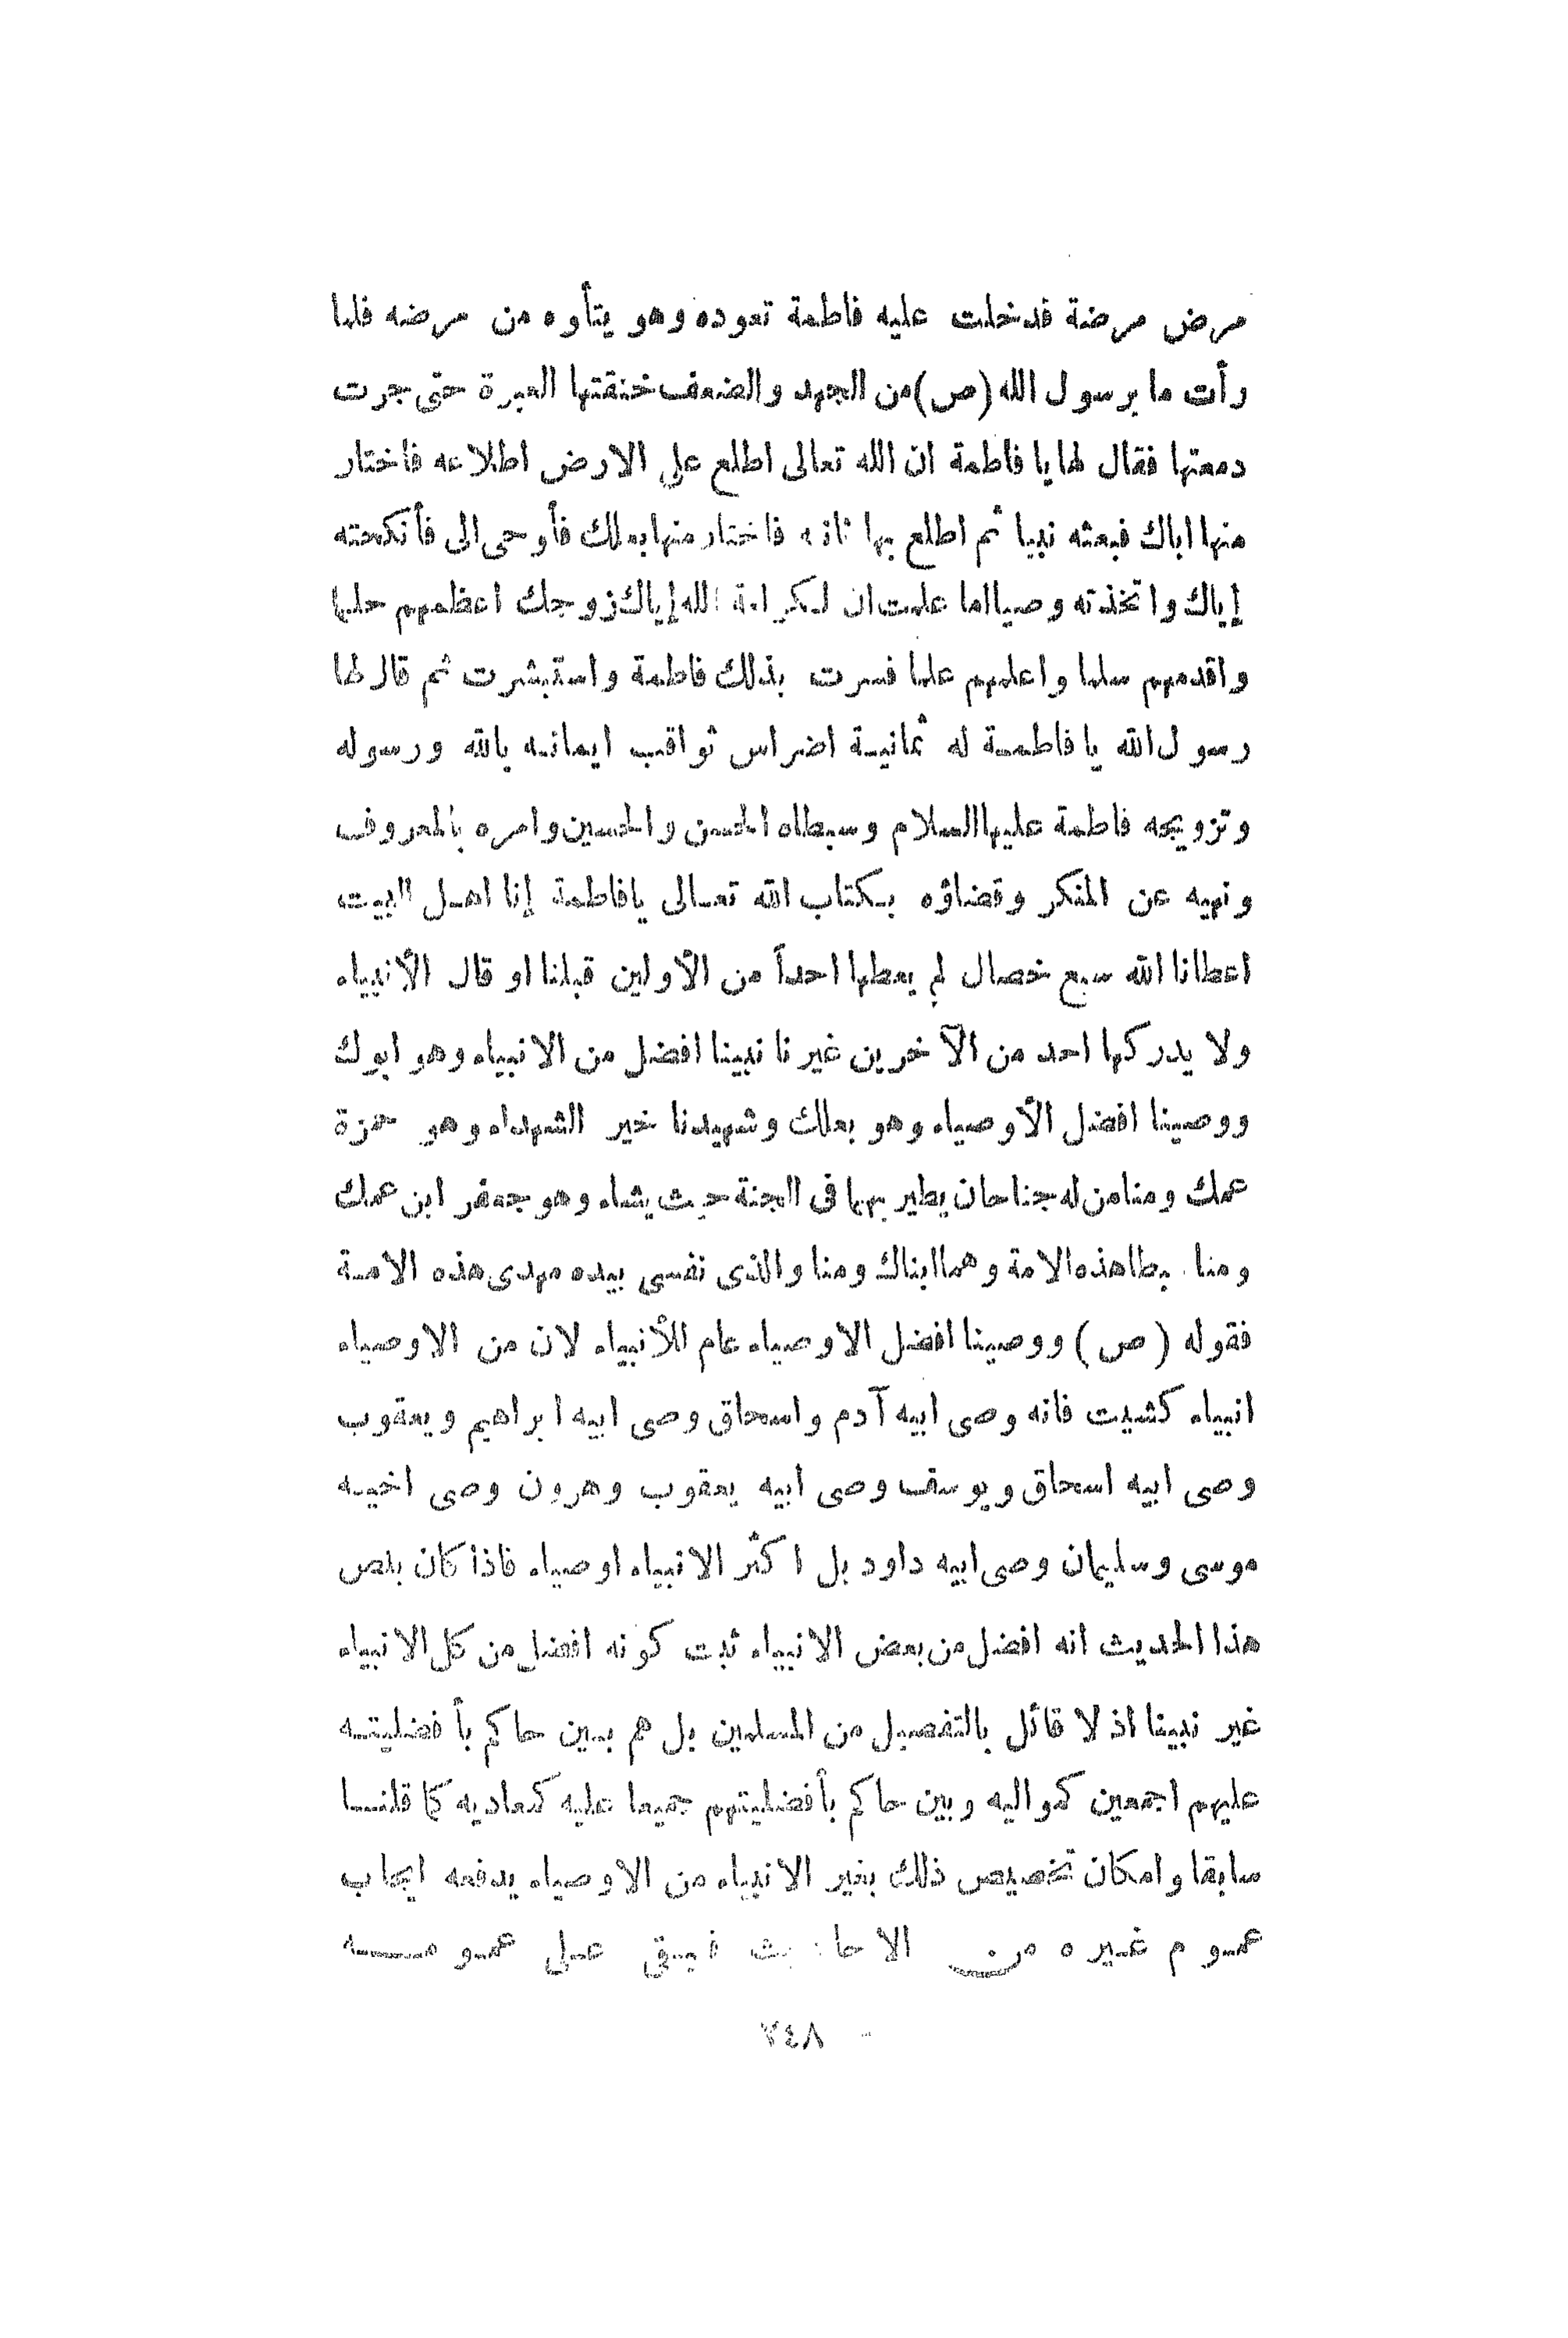 مرض مرضة فدخلت عليه فاطمة تعوده وهو يتأوه من مرضه فلما
رأت ما برسول الله (ص) من الجهد والضعف خنقتها العبرة حتى جرت
دمعتها فقال لها يا فاطمة ان الله تعالى اطلع على الارض اطلاعه فاختار
منها اباك فبعثه نبيا ثم اطلع بها فاختار منها بعلك فأوحى الى فأنكحته
إياك واتخذته وصيا اما علمت ان لكرامة الله إياك زوجك اعظمهم حلما
واقدمهم سلما واعلمهم علما فسرت بذلك فاطمة واستبشرت ثم قال لها
رسول الله يا فاطمة له ثمانية اضراس ثواقب ايمانه بالله ورسوله
وتزويجه فاطمة عليها السلام وسبطاه الحسن والحسين وامره بالمعروف
ونهيه عن المنكر وقضاؤه بكتاب الله تعالى يافاطمة إنا اهل البيت
اعطانا الله سبع خصال لم يعطها احداً من الأولين قبلنا او قال الأنبياء
ولا يدركها احد من الآخرين غيرنا نبينا افضل من الانبياء وهو ابوك
ووصينا افضل الأوصياء وهو بعلك وشهيدنا خير الشهداء وهو حمزة
عمك ومنا من له جناحان يطير بهما في الجنة حيث يشاء وهو جعفر ابن عمك
ومنا سبطا هذه الامة وهما ابناك ومنا والذى نفسى بيده مهدى هذه الامة
فقوله (ص) ووصينا افضل الاوصياء عام للأنبياء لان من الاوصياء
انبياء كشيت فانه وصى ابيه آدم واسحاق وصى ابيه ابراهيم ويعقوب
وصى ابيه اسحاق ويوسف وصى ابيه يعقوب وهرون وصى اخيه
موسى وسليمان وصى ابيه داود بل اكثر الانبياء اوصياء فاذا كان بنص
هذا الحديث انه افضل من بعض الانبياء ثبت كونه افضل من كل الانبياء
غير نبينا اذ لا قائل بالتفصيل من المسلمين بل هم بين حاكم بأفضليته
عليهم اجمعين كمواليه وبين حاكم بأفضليتهم جميعا عليه كمعاديه كما قلنا
سابقا وامكان تخصيص ذلك بغير الانبياء من الاوصياء يدفعه ايجاب
عموم غيره من الاحاديث فيبقى على عمومه
٢٤٨